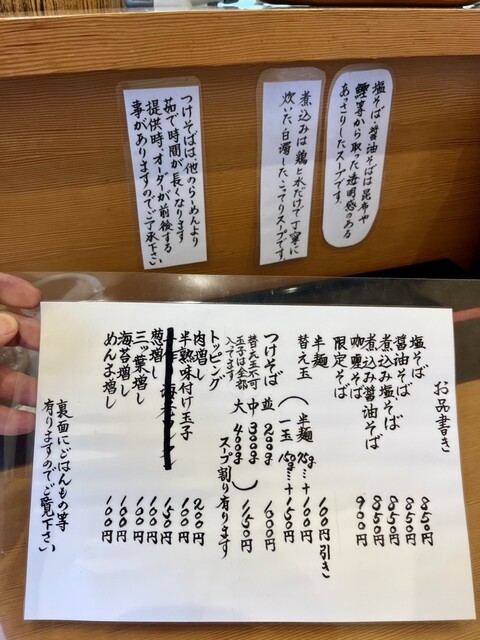 塩そば、醤油そばは昆布や
鰹等から取った透明感のある
あっさりしたスープです。
煮込みは鶏と水だけで丁寧に
炊いた白濁したこってりスープです。
つけそばは、他のらーめんより
茹で時間が長くなります
提供時、オーダーが前後する
事がありますのでご了承下さい
お品書き
塩そば 850円
醤油そば 850円
煮込み塩そば 850円
煮込み醤油そば 850円
咖喱そば 900円
限定そば
半麺 100円引き
替え玉(半麺75g…+100円
一玉150g…+150円
つけそば 並 200g 1000円
替え玉不可 中 300g
玉子は全部入ってます 大 400g) 1150円
スープ割り有ります
トッピング
肉増し 200円
半熟味付け玉子 100円
葱増し 100円
三ッ葉増し 100円
海苔増し 100円
めんま増し 100円
裏面にごはんもの等
有りますのでご覧下さい